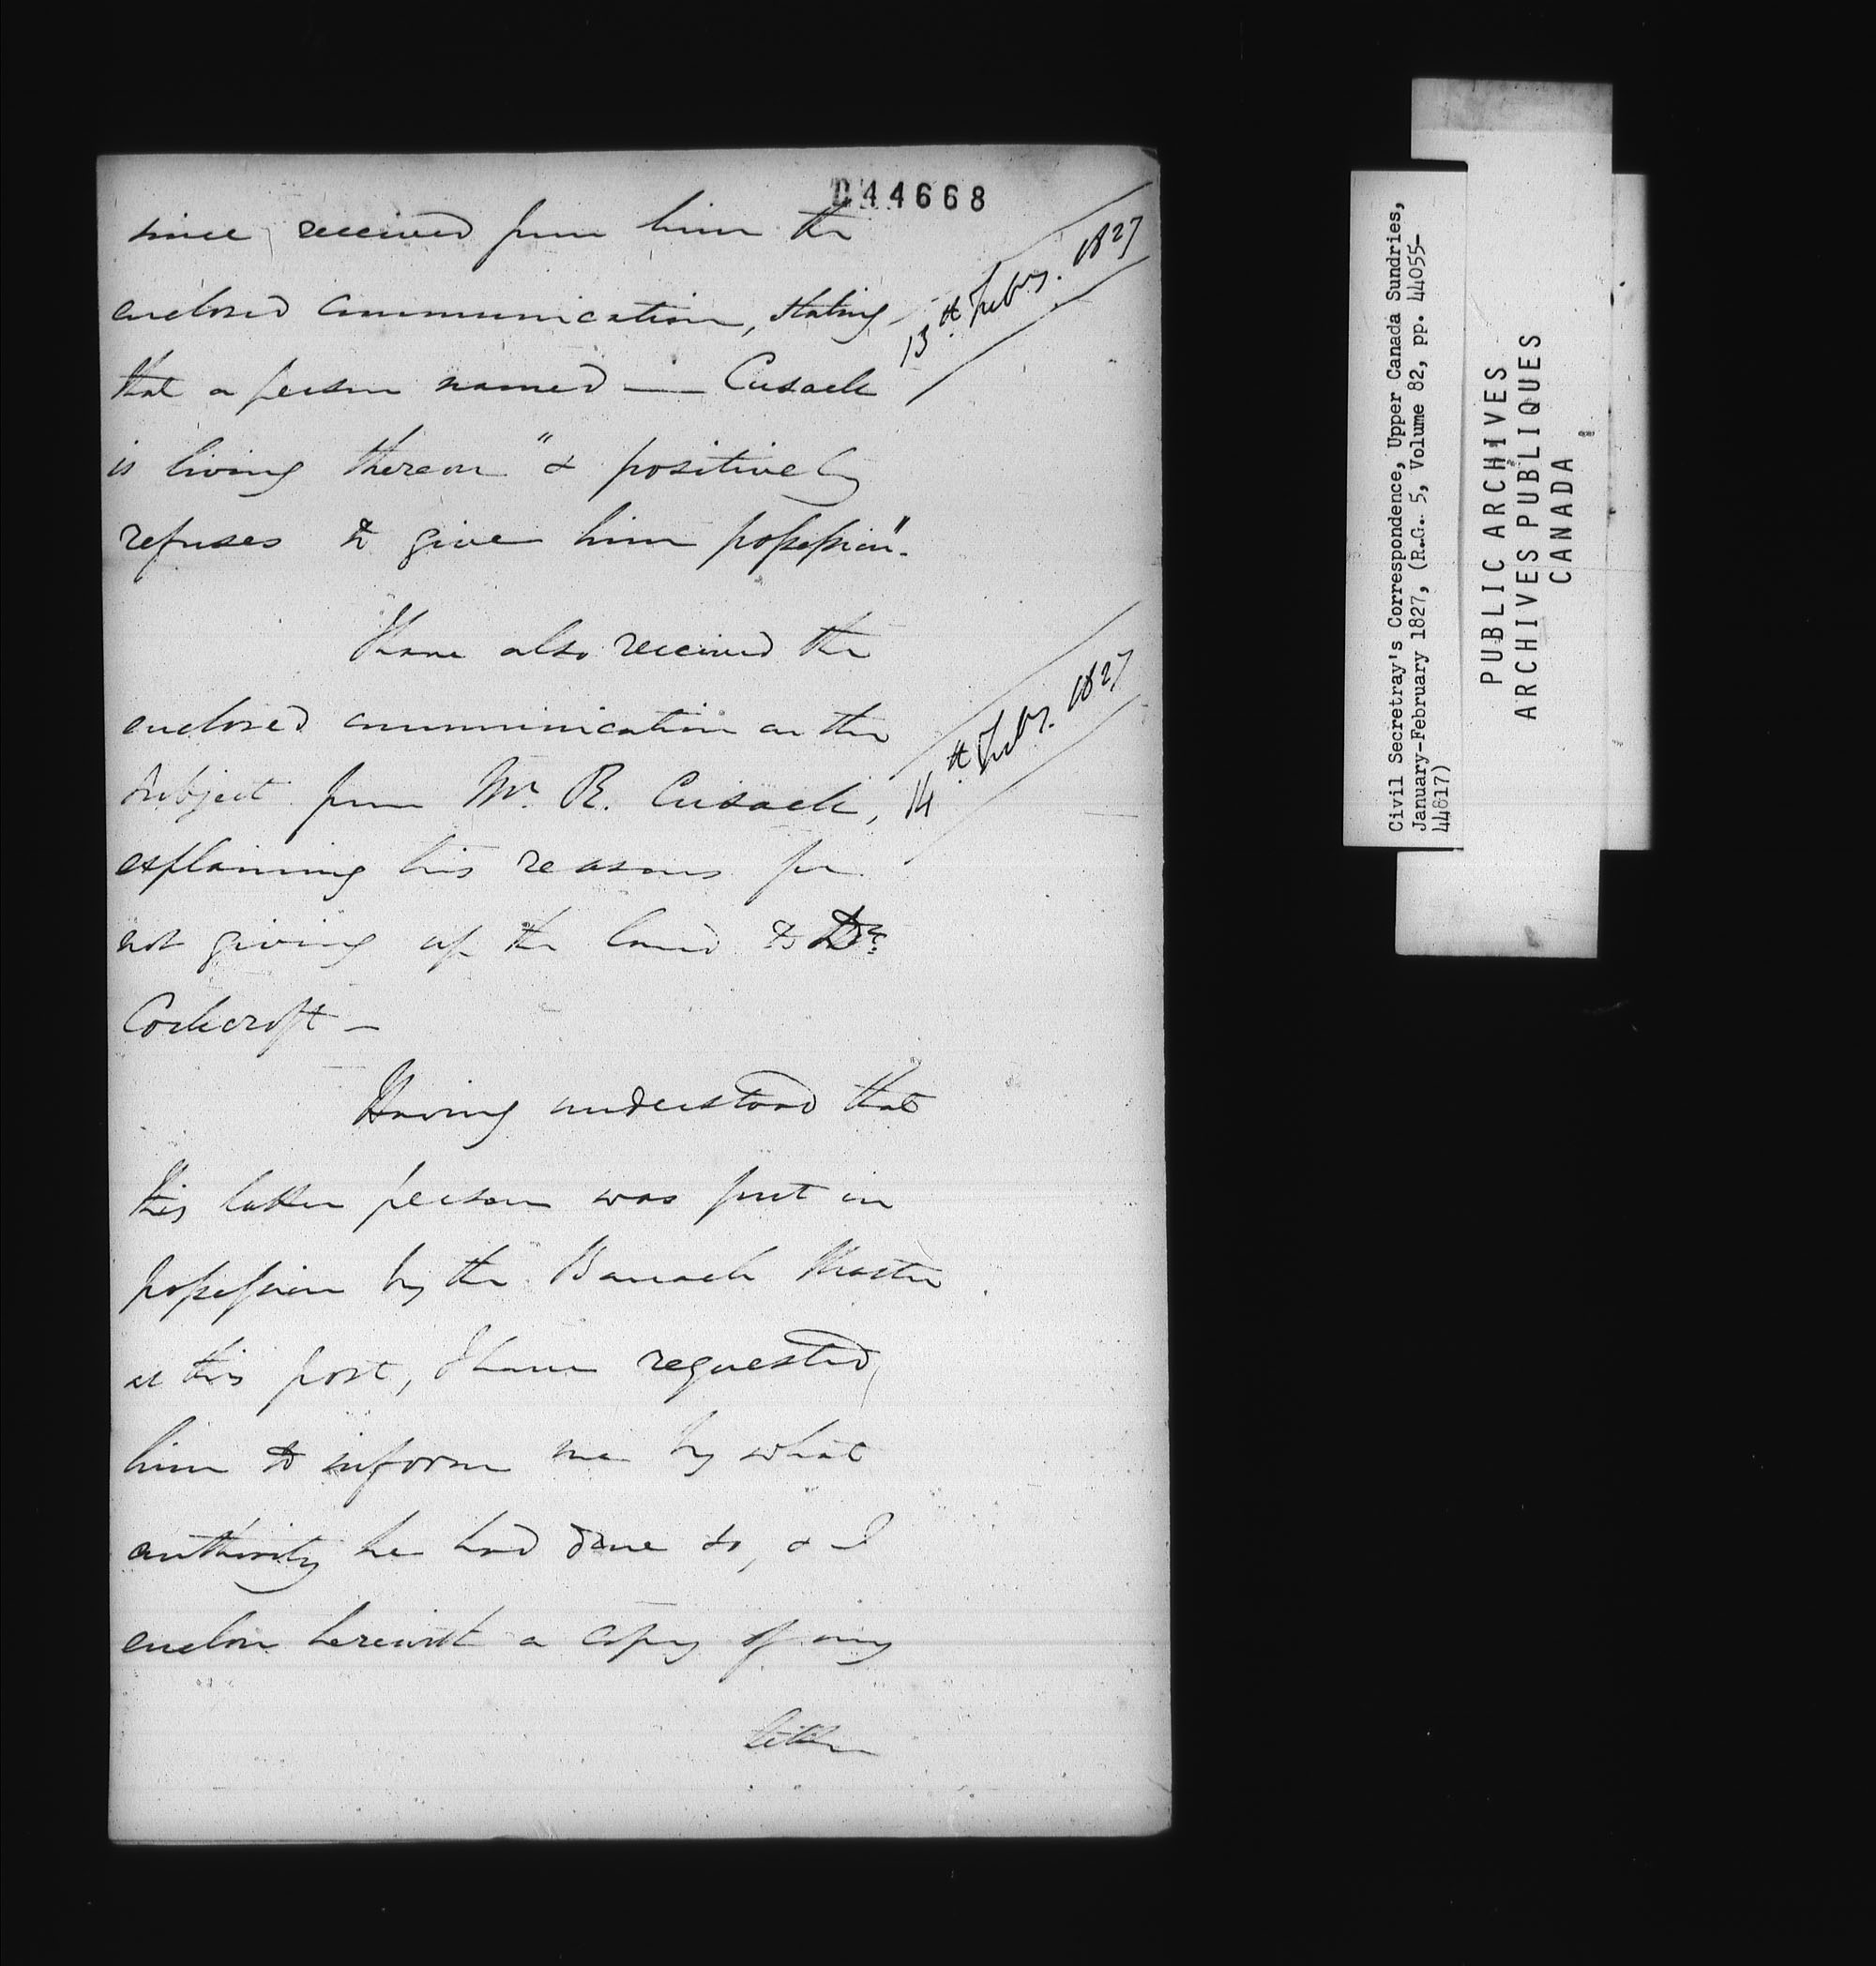 044668
since received from him the
enclosed communication, stating
13th Feby. 1827
that a person named —— Cusack
is living thereon "& positively
refuses to give him possession".
I have also received the
enclosed communication on the
14th Feby. 1827
subject from Mr. R. Cusack,
explaining his reasons for
not giving up the land to Dr.
Cockcroft —
Having understood that
this latter person was put in
possession by the Barrack Master
at this post, I have requested
him to inform me by what
authority he had done so, & I
enclose herewith a copy of my
letter
Civil Secretray's Correspondence, Upper Canada Sundries,
January-February 1827, (R.G. 5, Volume 82, pp. 44055-
44817)
PUBLIC ARCHIVES
ARCHIVES PUBLIQUES
CANADA